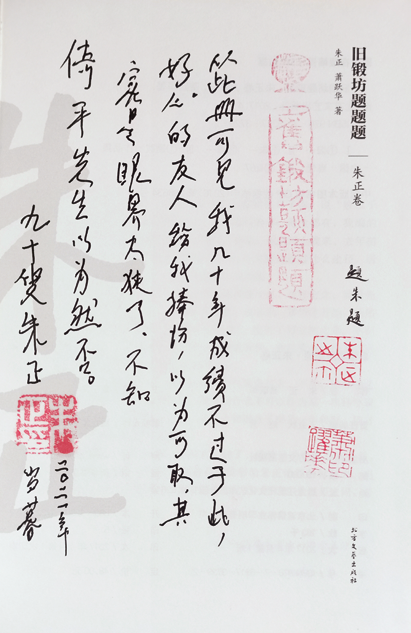 旧锻坊题题题——朱正卷
朱正 萧跃华 著
北方文艺出版社
以此册可见我几十年成绩不过于此，
好心的友人给我捧场，以为可取，其
实是眼界太狭了，不知
倚平先生以为然否。
九十叟朱正
二〇二一年
岁暮
朱正